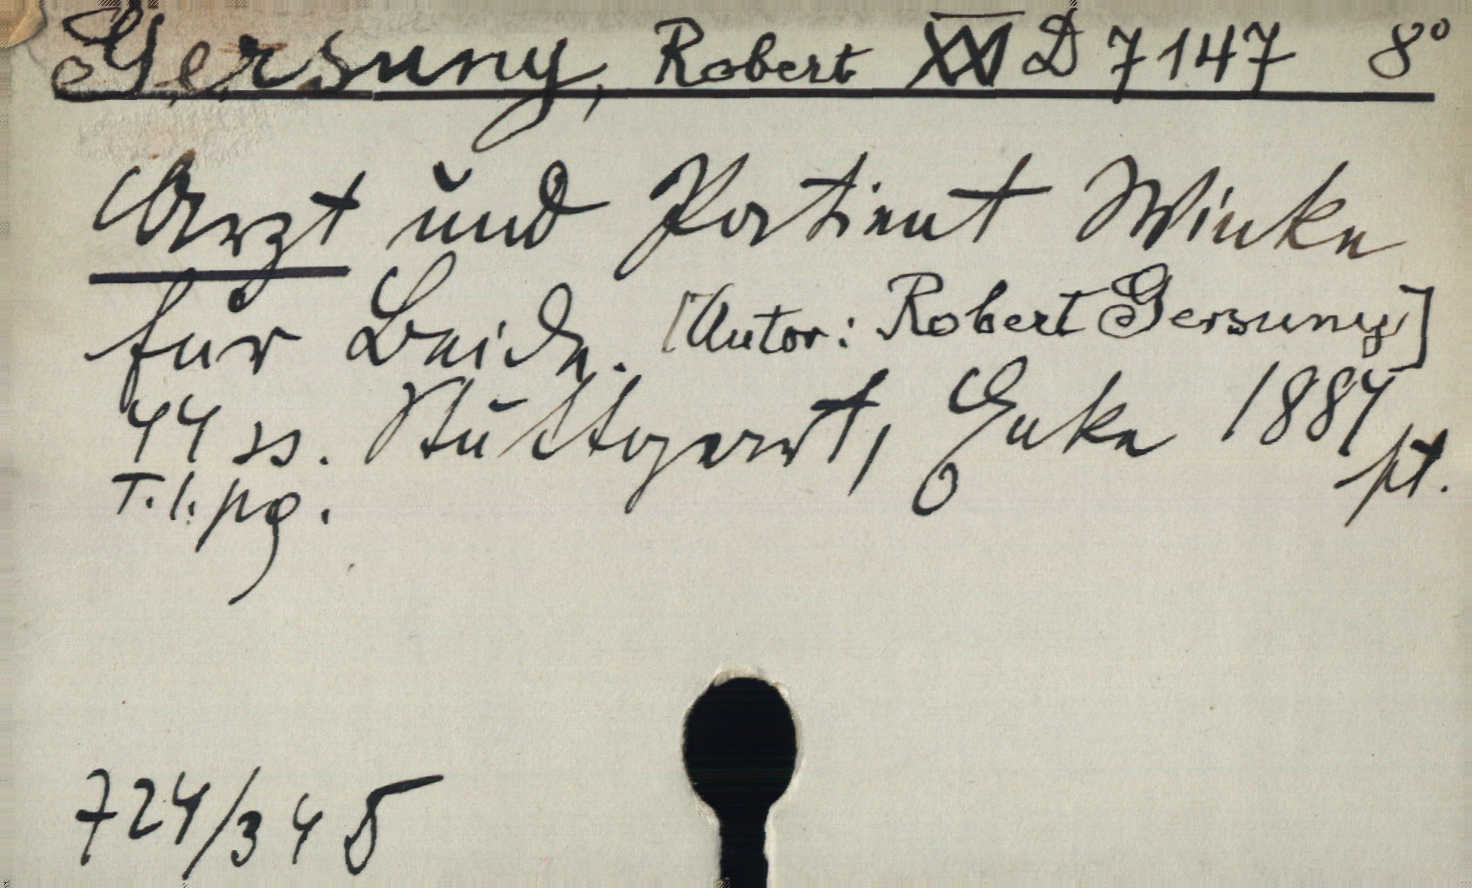 Gersuny, Robert XXI D 7147 8°
Arzt und Patient Winke
für Beide. [Autor: Robert Gersuny]
44 ss. Stuttgart, Enke 1884
T. l. pg. pt.
724/345